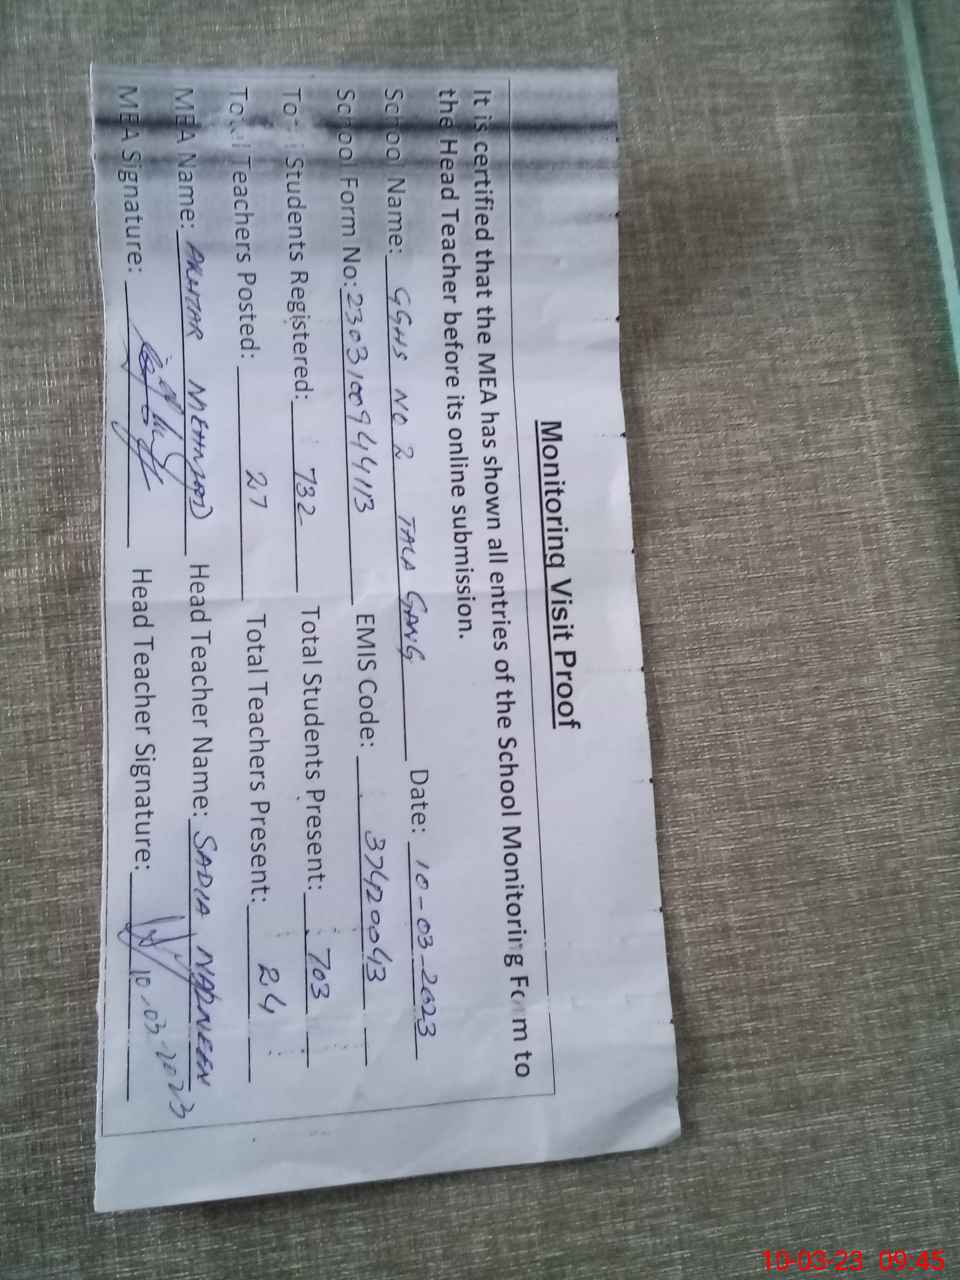 Monitoring Visit Proof
It is certified that the MEA has shown all entries of the School Monitoring Form to
the Head Teacher before its online submission.
School Name: GGHS NO 2 TALA GANG Date: 10-03-2023
School Form No: 2303100944113 EMIS Code: 37420043
Total Students Registered: 732 Total Students Present: 703
Total Teachers Posted: 27 Total Teachers Present: 24
MEA Name: Head Teacher Name: SADIA
MEA Signature: Head Teacher Signature: 10-03-2023
10-03-23 09:45